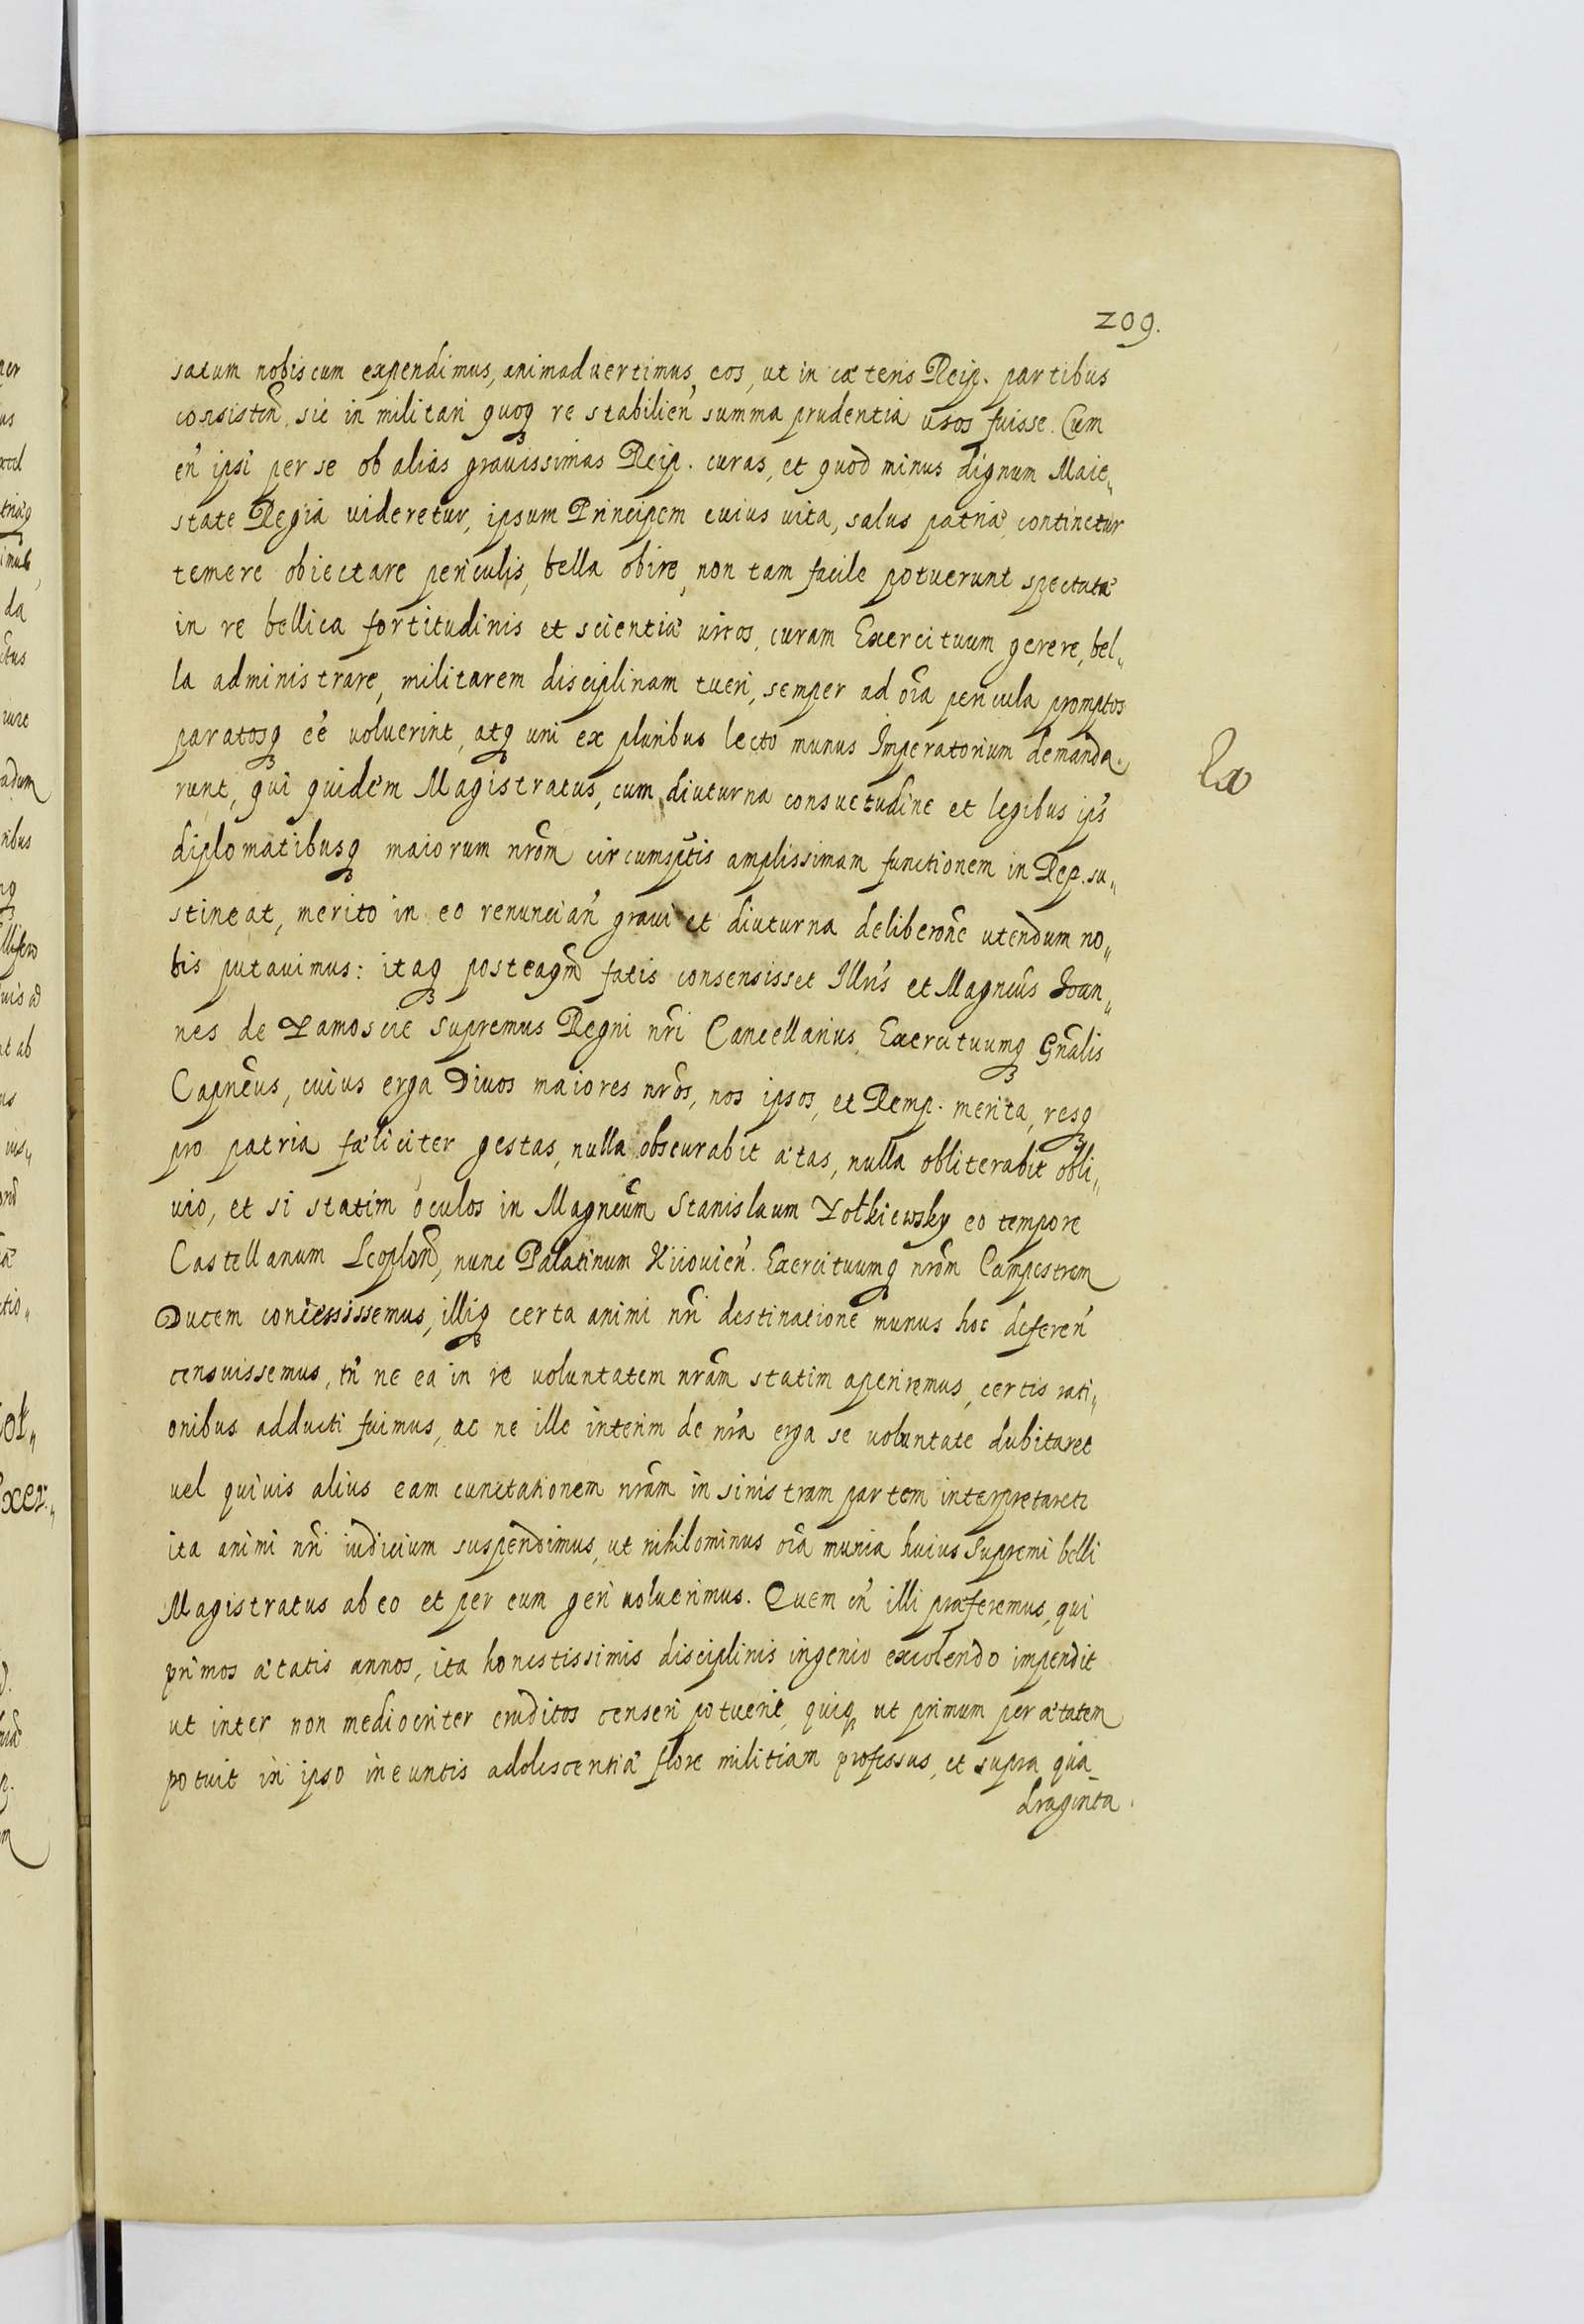 209.
satum nobiscum expendimus, animaduertimus, eos, ut in cæteris Reip. partibus
consisten̄, sic in militari quoqꝫ re stabilien̄ summa prudentia usos fuisse. Cum
en̄ ipsi per se ob alias grauissimas Reip. curas, et quod minus dignum Maie„
state Regia uideretur, ipsum Principem cuius uita, salus patriæ continetur
temere obiectare periculis, bella obire, non tam facile potuerunt spectatæ
in re bellica fortitudinis et scientiæ uiros, curam Exercituum gerere, bel„
la administrare, militarem disciplinam tueri, semper ad oīa pericula promptos
paratosqꝫ eē uoluerint, atqꝫ uni ex pluribus lecto munus Imperatorium demanda„
runt, qui quidem Magistratus, cum diuturna consuetudine et legibus ip̄s
diplomatibusqꝫ maiorum nrōm circumsp̄tis amplissimam functionem in Rep. su„
stineat, merito in eo renuncian̄ graui et diuturna deliberōne utendum no„
bis putauimus: itaqꝫ posteaqm̄ fatis consensisset Illrīs et Magncūs Ioan„
nes de Zamoscie Supremus Regni nr̄i Cancellarius, Exercituumqꝫ Gnālis
Capnēus, cuius erga Diuos maiores nrōs, nos ipsos, et Remp. merita, resqꝫ
pro patria fæliciter gestas, nulla obscurabit ætas, nulla obliterabit obli„
uio, et si statim oculos in Magncūm Stanislaum Zołkiewsky eo tempore
Castellanum Leopolēn, nunc Palatinum Kiiouien̄. Exercituumqꝫ nrōm Campestrem
Ducem coniecissemus, illiqꝫ certa animi nr̄i destinatione munus hoc deferen̄
censuissemus, tn̄ ne ea in re uoluntatem nrām statim aperiremus, certis rati„
onibus adducti fuimus, ac ne ille interim de nr̄a erga se uoluntate dubitaret
uel quiuis alius eam cunctationem nrām in sinistram partem interpretaretr
ita animi nr̄i iudicium suspendimus, ut nihilominus oīa munia huius Supremi belli
Magistratus ab eo et per eum geri uoluerimus. Quem en̄ illi præferemus, qui
primos ætatis annos, ita honestissimis disciplinis ingenio excolendo impendit
ut inter non mediocriter eruditos censeri potuerit, quiqꝫ ut primum per ætatem
potuit in ipso ineuntis adolescentiæ flore militiam professus, et supra qua
draginta